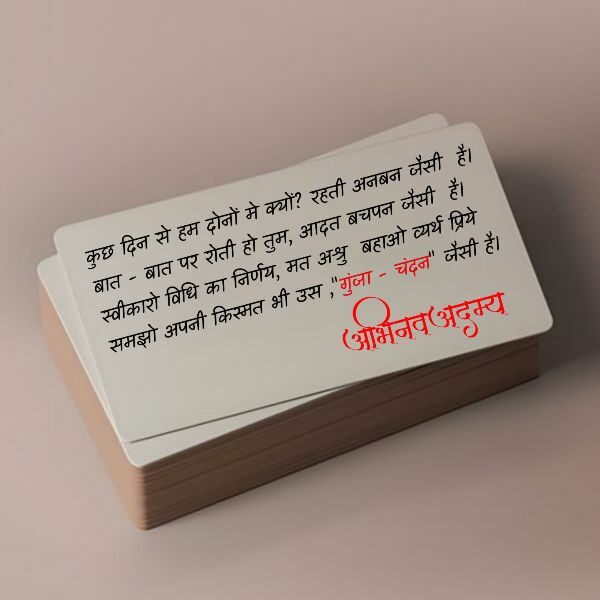 कुछ दिन से हम दोनों मे क्यों? रहती अनबन जैसी है।
बात - बात पर रोती हो तुम, आदत बचपन जैसी है।
स्वीकारो विधि का निर्णय, मत अश्रु बहाओ व्यर्थ प्रिये
समझो अपनी किस्मत भी उस ,"गुंजा - चंदन" जैसी है।
अभिनव अदम्य